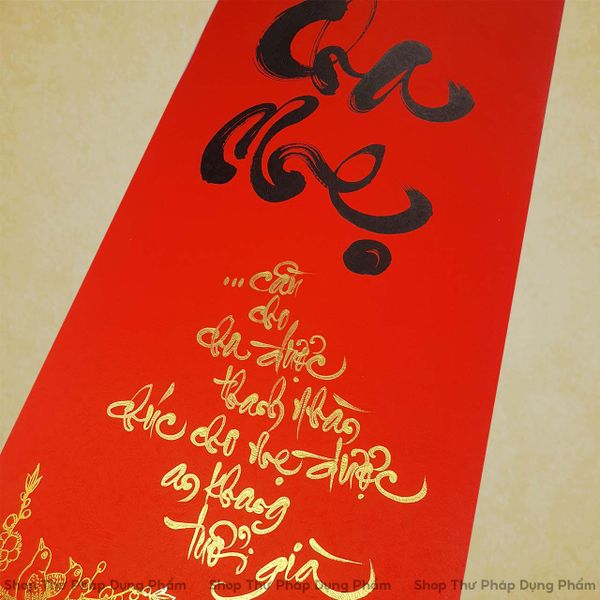 Cha
Mẹ
...cầu
cho
cha được
thanh nhàn
chúc cho mẹ được
an khang
tuổi già
Shop Thư Pháp Dụng Phẩm Shop Thư Pháp Dụng Phẩm Shop Thư Pháp Dụng Phẩm